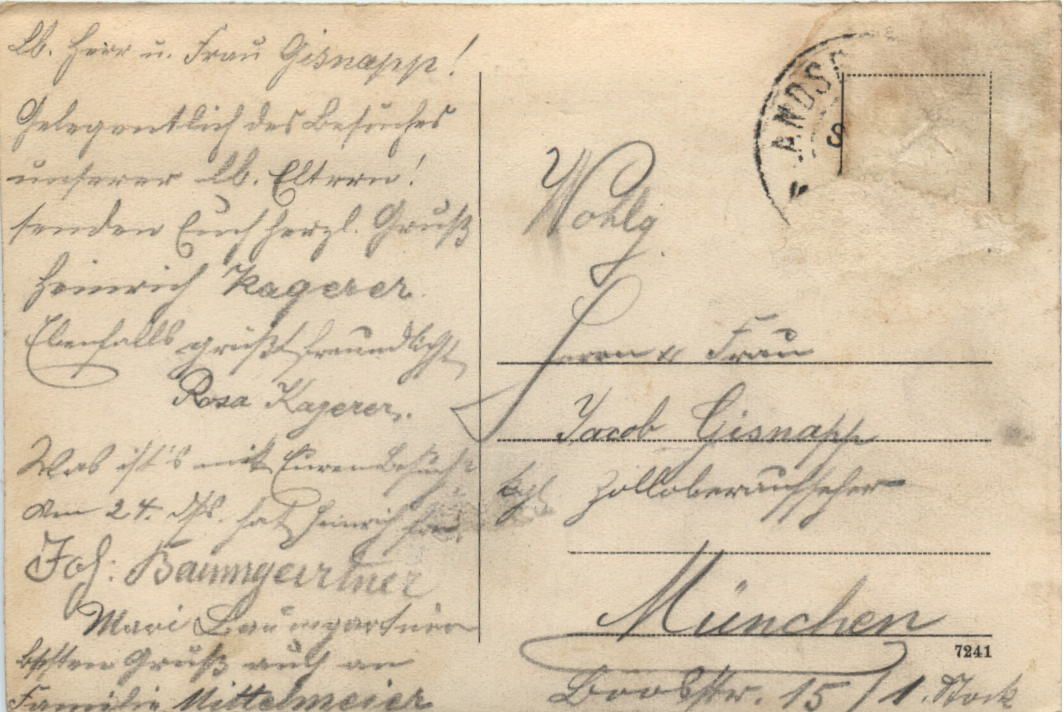 Lb. Herr u. Frau Gisnapp!
Gelegentlich des Besuches
unserer lb. Eltern!
senden Euch herzl. Gruß
Heinrich Kagerer.
Ebenfalls grüßt freundlichst
Rosa Kagerer.
Was ist's mit Euren Besuch
Am 24. ds. hat Heinrich frei.
Joh: Baumgärtner
Mari Baumgartner
besten Gruß auch an
Familie Mittelmeier
ANDS
S
Wohlg
Herrn & Frau
Jacob Gisnapp
kgl. Zolloberaufseher
München
7241
15/1. Stock